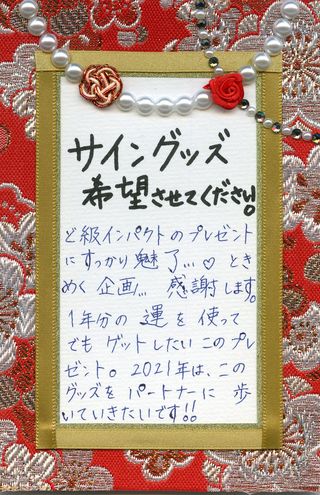 サイングッズ
希望させてください!
ど級インパクトのプレゼント
にすっかり魅了…♡ とき
めく企画… 感謝します。
1年分の運を使って
でもゲットしたいこのプレ
ゼント。2021年は、この
グッズをパートナーに歩
いていきたいです!!